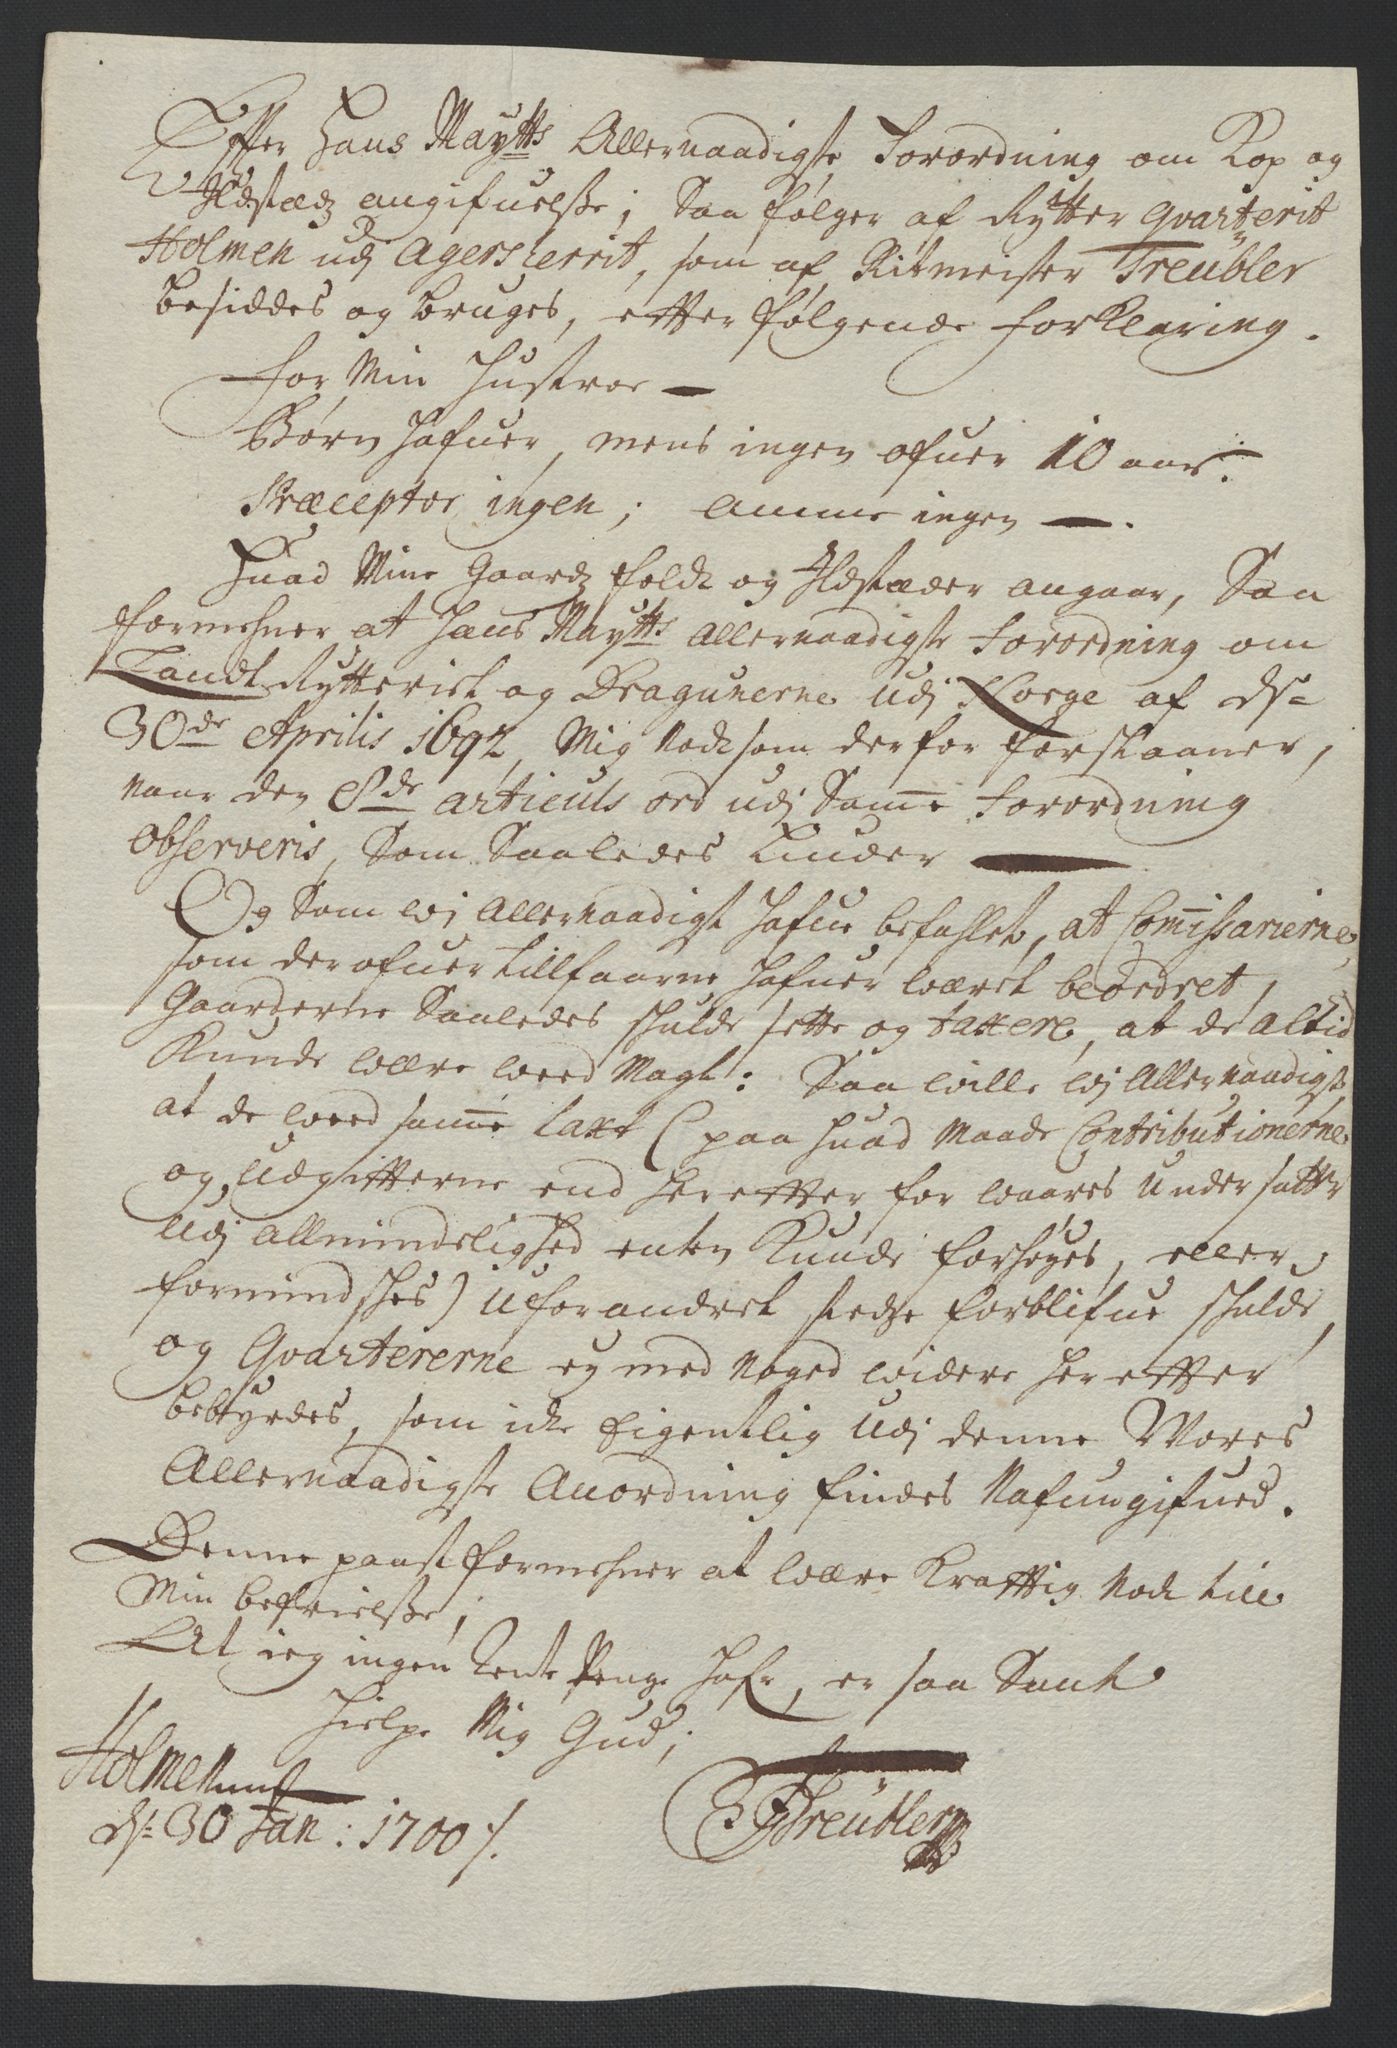 Effter Hans Maytts Allernaadigste Forordning om Kop og
Ildstædz angifuelsse; Saa følger af Rytter Qvarterit
Holmen udj Agersherrit, som af Ritmeister Treübler
besiddes og bruges, effter følgende forklaring.
for Min Hustroe —
Børn hafuer, mens ingen ofuer 10 aar.
Præceptor ingen; Amme ingen —.
Huad Mine Gaardz folck og Ildstæder angaar, Saa
formehner at Hans Maytts Allernaadigste Forordning om
Landt Rytteriet og Dragunerne udj Norge af ds=
30de Aprilis 1692, Mig Nocksom derfor forskaaner,
naar den 8de articuls ord udj Samme Forordning
observeris, Som Saaledes Liuder —
Og Som Wj Allernaadigst hafue befahlet, at Commissarierne,
som derofuer tillforne hafuer wæret beordret,
Gaarderne Saaledes skulde sette og taxere, at de altid
Kunde wære weed Magt: Saa wille Wj Allernaadigst,
at de weed samme taxt (paa huad Maade Contributionerne
og Udgiffterne end her effter for waares Undersaatter
Udj Allmindelighed enten Kunde forhøyes, eller
formindskes) uforandret stedze forblifue skulde,
og Qvartererne ey med Noged widere her effter
bebyrdes, som icke Eigentlig Udj denne Wores
Allernaadigste Anordning findes Nafungifued.
Denne post formehner at wære Krafftig Nock till
Min befrielsse;
At ieg ingen Rente Penge hafr, er saa Sant
hielpe Mig Gud;
Holmen
ds: 30 Jan: 1700 /.
Treübler